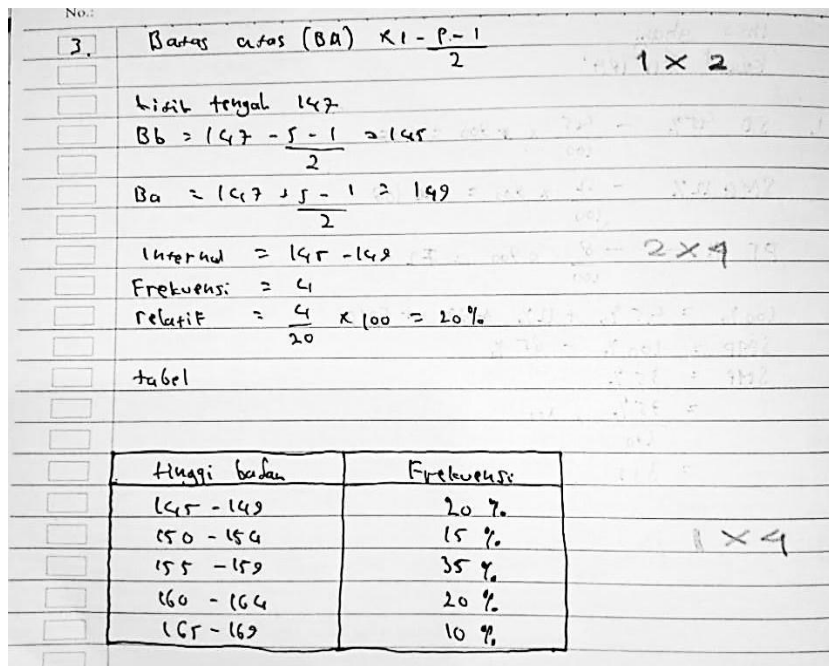 No.:
3. Batas atas (BA) xi - p - 1 / 2
1 x 2
titik tengah 147
Bb = 147 - 5 - 1 / 2 = 145
Ba = 147 + 5 - 1 / 2 = 149
Interval = 145 - 149
2 x 4
Frekuensi = 4
relatif = 4 / 20 x 100 = 20 %
tabel
tinggi badan Frekuensi
145 - 149 20 %
150 - 154 15 %
1 x 4
155 - 159 35 %
160 - 164 20 %
165 - 169 10 %